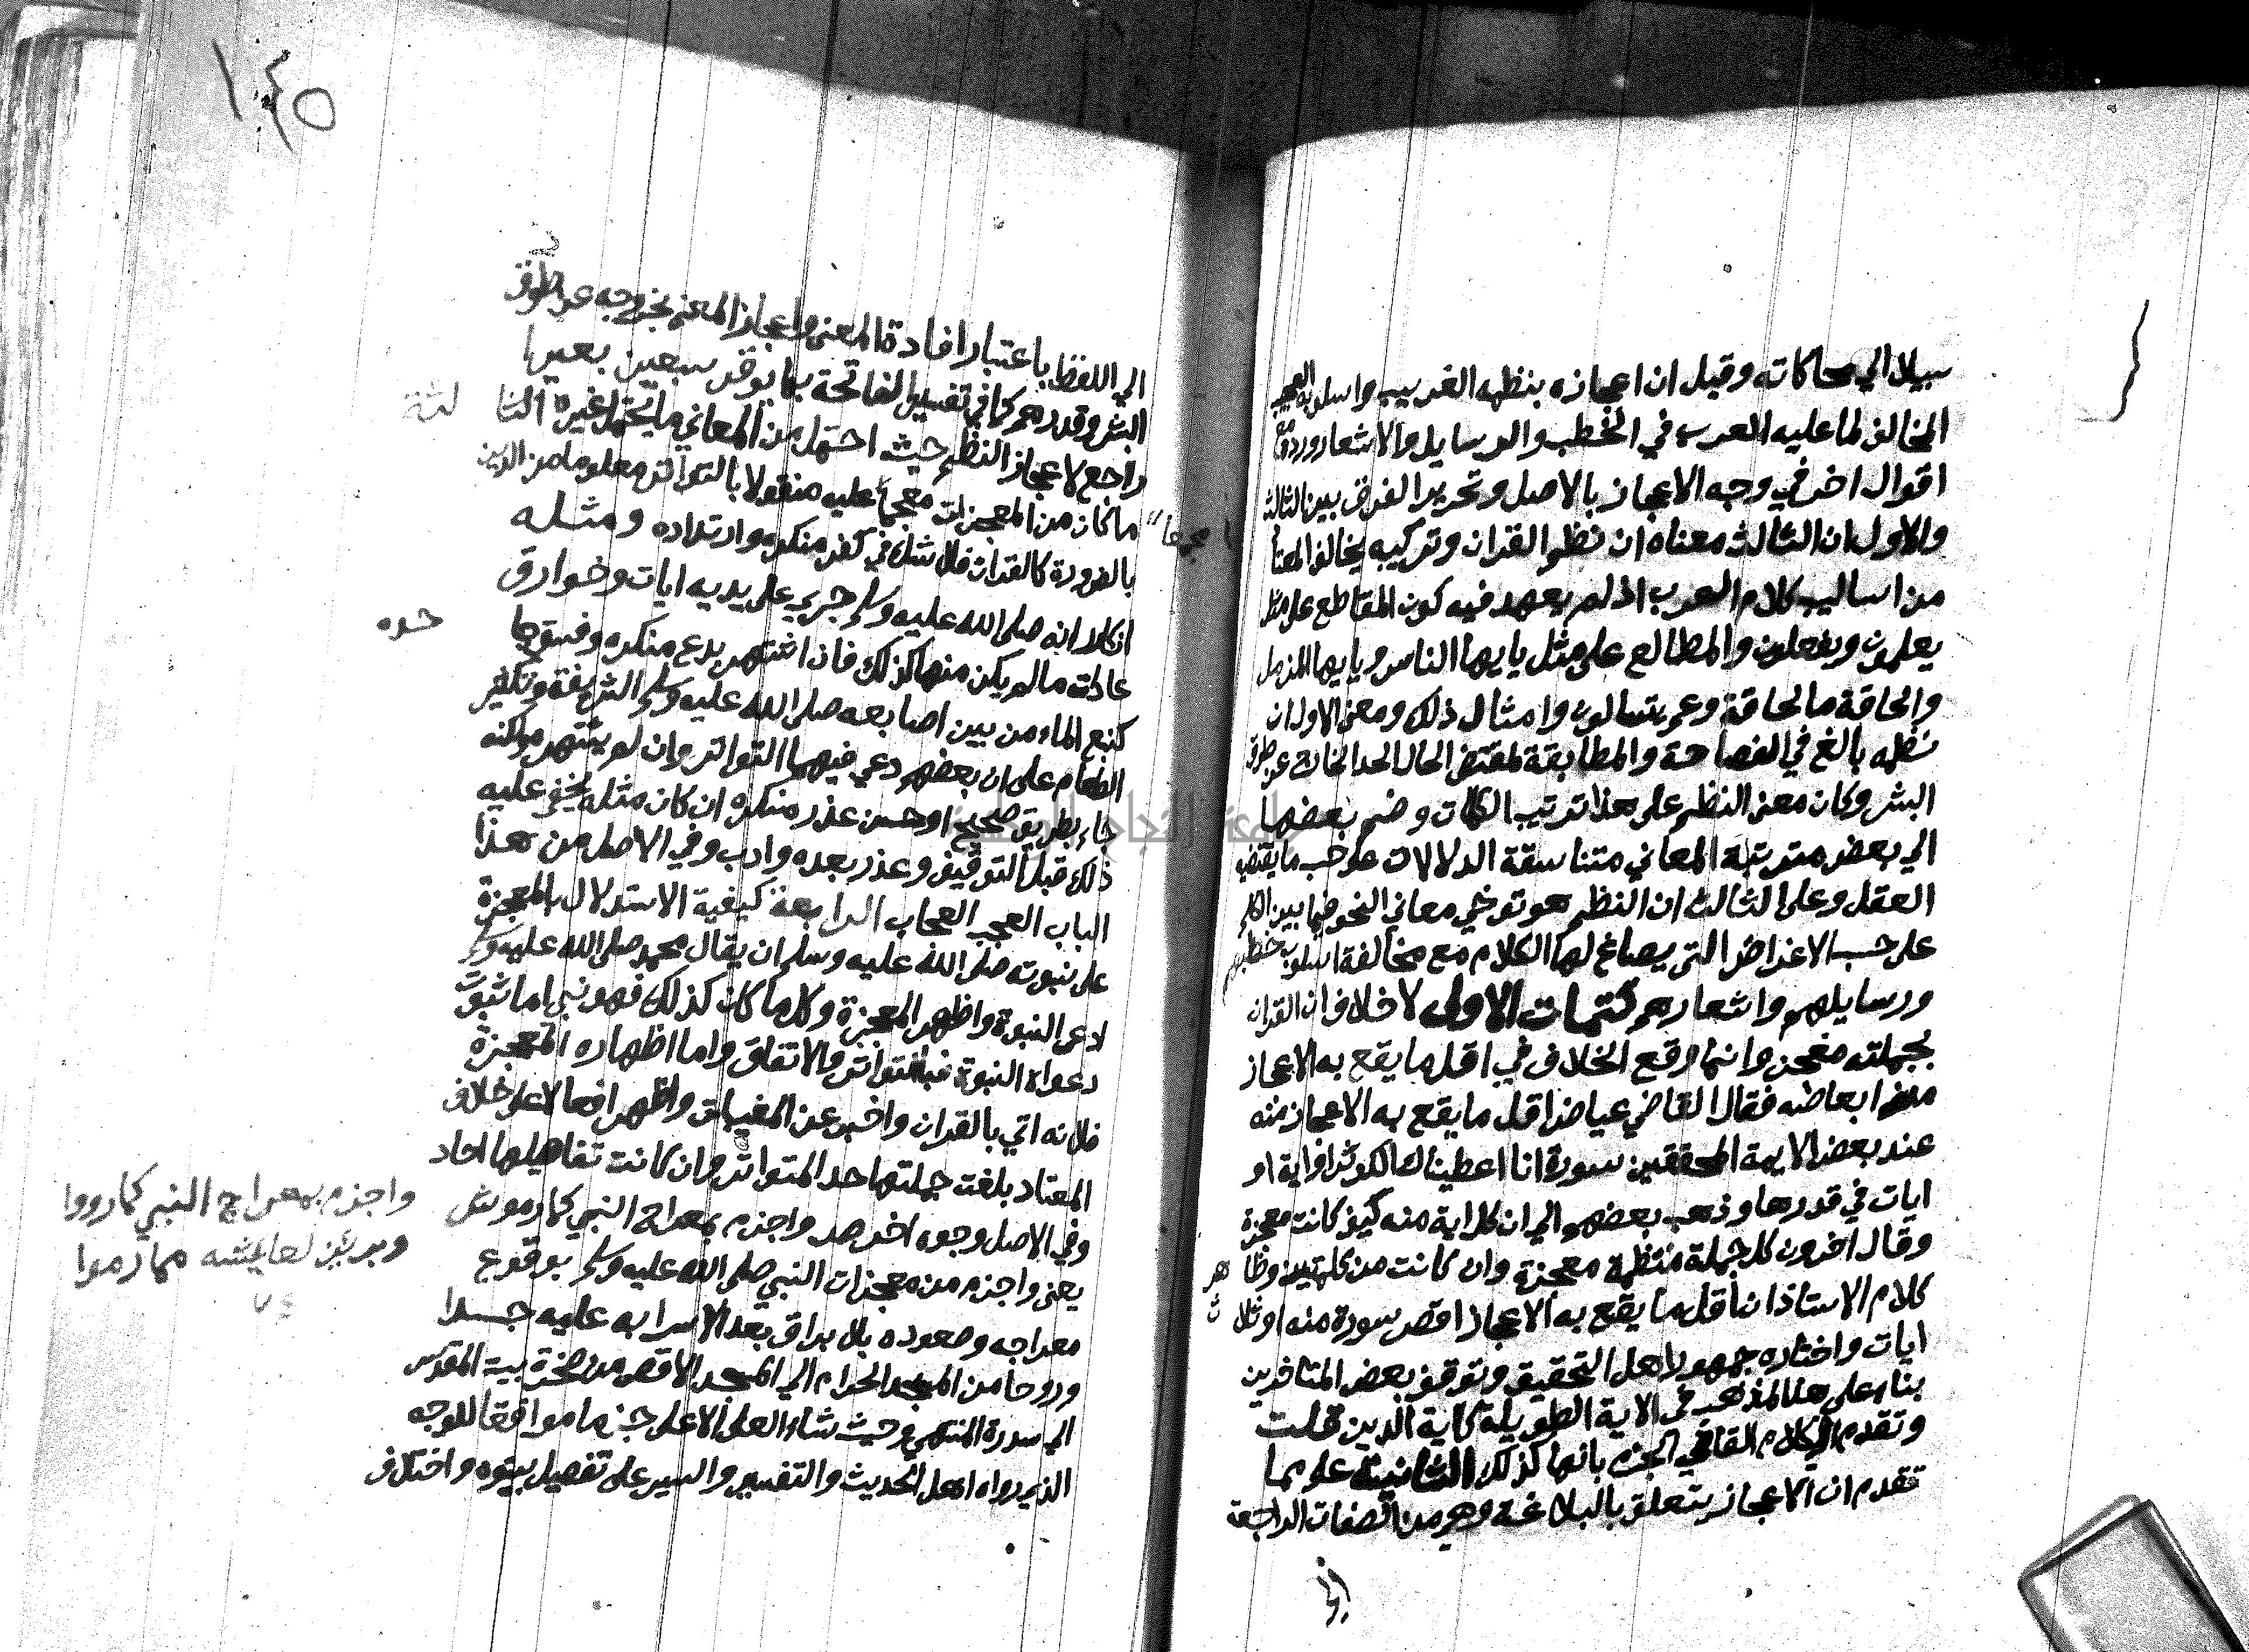 سبيلا الي محاكاته وقيل ان اعجازه بنظمه الغريب واسلوبه العجيب
المخالف لما عليه العرب في الخطب والرسايل والاشعار وردفه مع
اقوال اخر في وجه الاعجاز بالاصل وتحرير الفرق بين الثالث
والاول ان الثالث معناه ان نظم القران وتركيبه يخالف المعتا
من اساليب كلام العرب اذ لم يعهد فيه كون المقاطع على مثل
يعلمون ويفعلون والمطالع على مثل يايها الناس ويايها المزمل
والحاقة ما لحاقة وعم يتسالون وامثال ذلك ومعنى الاول ان
نظمه بالغ في الفصاحة والمطابقة لمقتضى الحال الحد الخارج عن طوق
البشر وكان معنى النظم على هذا ترتيب الكلمات وضم بعضها
الي بعض مترتبة المعاني متناسقة الدلالات على حسب ما يقتضيه
العقل وعلى الثالث ان النظم هو توخي معاني النحو فيما بين الكلم
على حسب الاغراض التي يصاغ لها الكلام مع مخالفة اسلوب خطبهم
ورسايلهم واشعارهم تتمات الاولى لا خلاف ان القران
بجملته معجز وانما وقع الخلاف في اقل ما يقع به الاعجاز
من ابعاضه فقال القاضي عياض اقل ما يقع به الاعجاز منه
عند بعض الايمة المحققين سورة انا اعطيناك الكوثر او اية او
ايات في قدرها وذهب بعضهم الي ان كل اية منه كيف كانت معجزة
وقال اخرون كل جملة منتظمة معجزة وان كانت من كلمتين وظا هر
كلام الاستاذ ان اقل ما يقع به الاعجاز اقصر سورة منه او ثلا ث
ايات واختاره جمهور اهل التحقيق وتوقف بعض المتاخرين
بناء على هذا المذهب في الاية الطويلة كاية الدين قلت
وتقدم في كلام القاضي الجزم بانها كذلك الثانية علم مما
تقدم ان الاعجاز يتعلق بالبلاغة وهي من الصفات الراجعة
١٤٥
الي اللفظ باعتبار افادة المعنى واعجاز المعنى بخروجه عن طوق
البشر وقدرهم كما في تفسير الفاتحة بما يوقر سبعين بعيرا
راجع لاعجاز النظم حيث احتمل من المعاني ما لا يحتمل غيره الثا لثة
ما كان من المعجزات مجمعا عليه منقولا بالتواتر معلوما من الدين
بالضرورة كالقران فلا شك في كفر منكره وارتداده ومثله
انكار انه صلى الله عليه وسلم جرى على يديه ايات وخوارق
عادات ما لم يكن منها كذلك فان اشتهر بدع منكره وفسق
كنبع الماء من بين اصابعه صلى الله عليه وسلم الشريفة وتكثير
الطعام على ان بعضهم دعي فيهما التواتر وان لم يشتهر ولكنه
جاء بطريق صحيح او حسن عذر منكره ان كان مثله يخفى عليه
ذلك قبل التوقيف وعذر بعده وادب وفي الاصل من هذا
الباب العجب العجاب الرابعة كيفية الاستدلال بالمعجزة
على نبوته صلى الله عليه وسلم ان يقال محمد صلى الله عليه وسلم
ادعى النبوة واظهر المعجزة وكل ما كان كذلك فهو نبي اما ثبوت
دعواه النبوة فبالتواتر والاتفاق واما اظهاره المعجزة
فلانه اتي بالقران واخبر عن المغيبات واظهر افعالا على خلاف
المعتاد بلغت جملتها حد المتواتر وان كانت تفاصيلها احاد
وفي الاصل وجوه اخر ص واجزم بمعراج النبي كما رووا ش
يعني واجزم من معجزات النبي صلى الله عليه وسلم بوقوع
معراجه وصعوده بلا براق بعد الاسرا به عليه جسدا
وروحا من المسجد الحرام الي المسجد الاقصى من صخرة بيت المقدس
الي سدرة المنتهى وحيث شاء العلى الاعلى جزما موافقا للوجه
الذي رواه اهل الحديث والتفسير والسير على تفصيل بينوه واختلاف
واجزم بمعراج النبي كما رووا
وبرئن لعايشه مما رموا
جامعة النجاح الوطنية